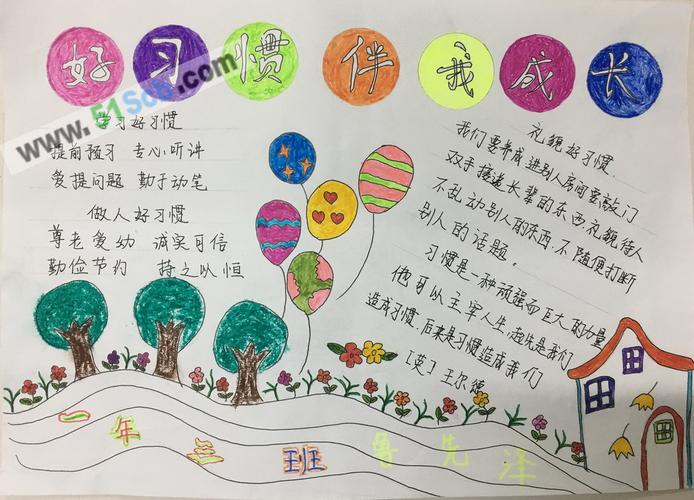 好习惯伴我成长
www.51Sos.com
学习好习惯
提前预习 专心听讲
爱提问题 勤于动笔
做人好习惯
尊老爱幼 诚实可信
勤俭节约 持之以恒
礼貌好习惯
我们要养成进别人房间要敲门
双手接递长辈的东西,礼貌待人
不乱动别人的东西,不随便打断
别人的话题。
习惯是一种顽强而巨大的力量
他可以主宰人生,起先是我们
造成习惯,后来是习惯造成我们
[英]王尔德
一年三班 鲁先泽